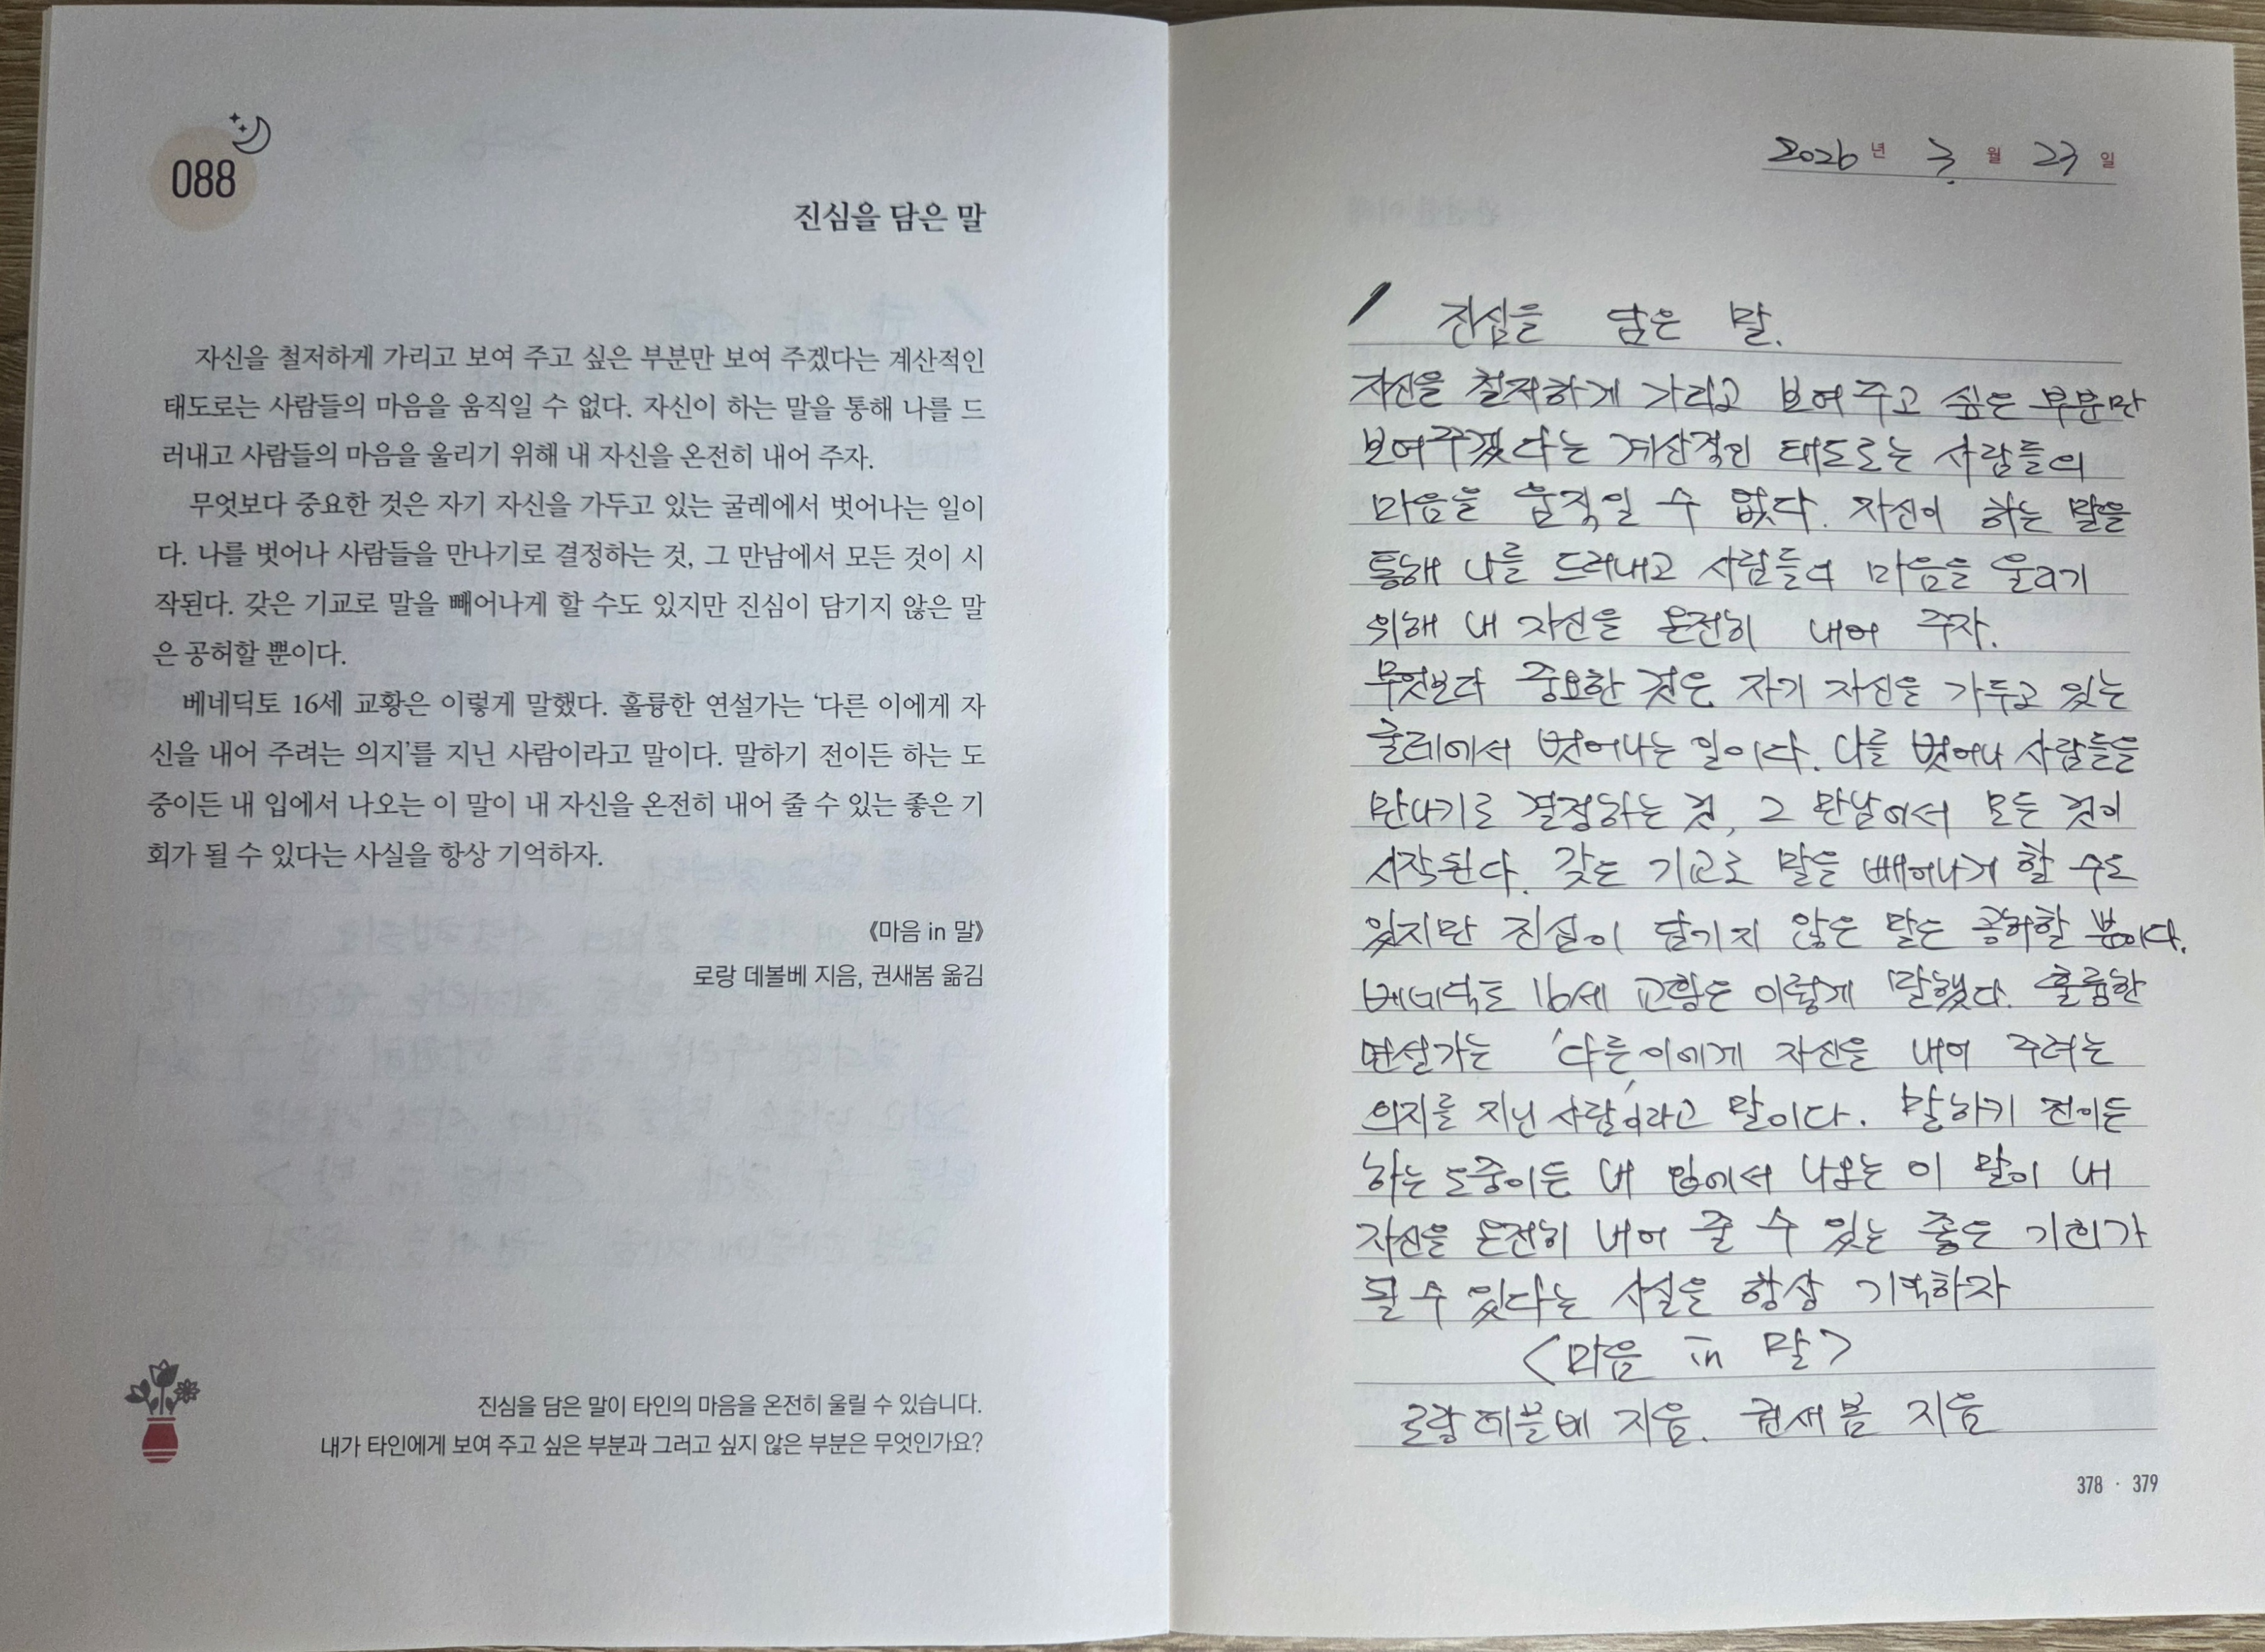 088
진심을 담은 말
자신을 철저하게 가리고 보여 주고 싶은 부분만 보여 주겠다는 계산적인
태도로는 사람들의 마음을 움직일 수 없다. 자신이 하는 말을 통해 나를 드
러내고 사람들의 마음을 울리기 위해 내 자신을 온전히 내어 주자.
무엇보다 중요한 것은 자기 자신을 가두고 있는 굴레에서 벗어나는 일이
다. 나를 벗어나 사람들을 만나기로 결정하는 것, 그 만남에서 모든 것이 시
작된다. 갖은 기교로 말을 빼어나게 할 수도 있지만 진심이 담기지 않은 말
은 공허할 뿐이다.
베네딕토 16세 교황은 이렇게 말했다. 훌륭한 연설가는 ‘다른 이에게 자
신을 내어 주려는 의지’를 지닌 사람이라고 말이다. 말하기 전이든 하는 도
중이든 내 입에서 나오는 이 말이 내 자신을 온전히 내어 줄 수 있는 좋은 기
회가 될 수 있다는 사실을 항상 기억하자.
《마음 in 말》
로랑 데볼베 지음, 권새봄 옮김
진심을 담은 말이 타인의 마음을 온전히 울릴 수 있습니다.
내가 타인에게 보여 주고 싶은 부분과 그러고 싶지 않은 부분은 무엇인가요?
2026년 3월 23일
진심을 담은 말.
자신을 철저하게 가리고 보여 주고 싶은 부분만
보여주겠다는 계산적인 태도로는 사람들의
마음을 움직일 수 없다. 자신이 하는 말을
통해 나를 드러내고 사람들의 마음을 울리기
위해 내 자신을 온전히 내어 주자.
무엇보다 중요한 것은 자기 자신을 가두고 있는
굴레에서 벗어나는 일이다. 나를 벗어나 사람들을
만나기로 결정하는 것, 그 만남에서 모든 것이
시작된다. 갖은 기교로 말을 빼어나게 할 수도
있지만 진심이 담기지 않은 말은 공허할 뿐이다.
베네딕토 16세 교황은 이렇게 말했다. 훌륭한
연설가는 '다른 이에게 자신을 내어 주려는
의지를 지닌 사람'이라고 말이다. 말하기 전이든
하는 도중이든 내 입에서 나오는 이 말이 내
자신을 온전히 내어 줄 수 있는 좋은 기회가
될 수 있다는 사실을 항상 기억하자
<마음 in 말>
로랑 데볼베 지음. 권새봄 지음
378 · 379